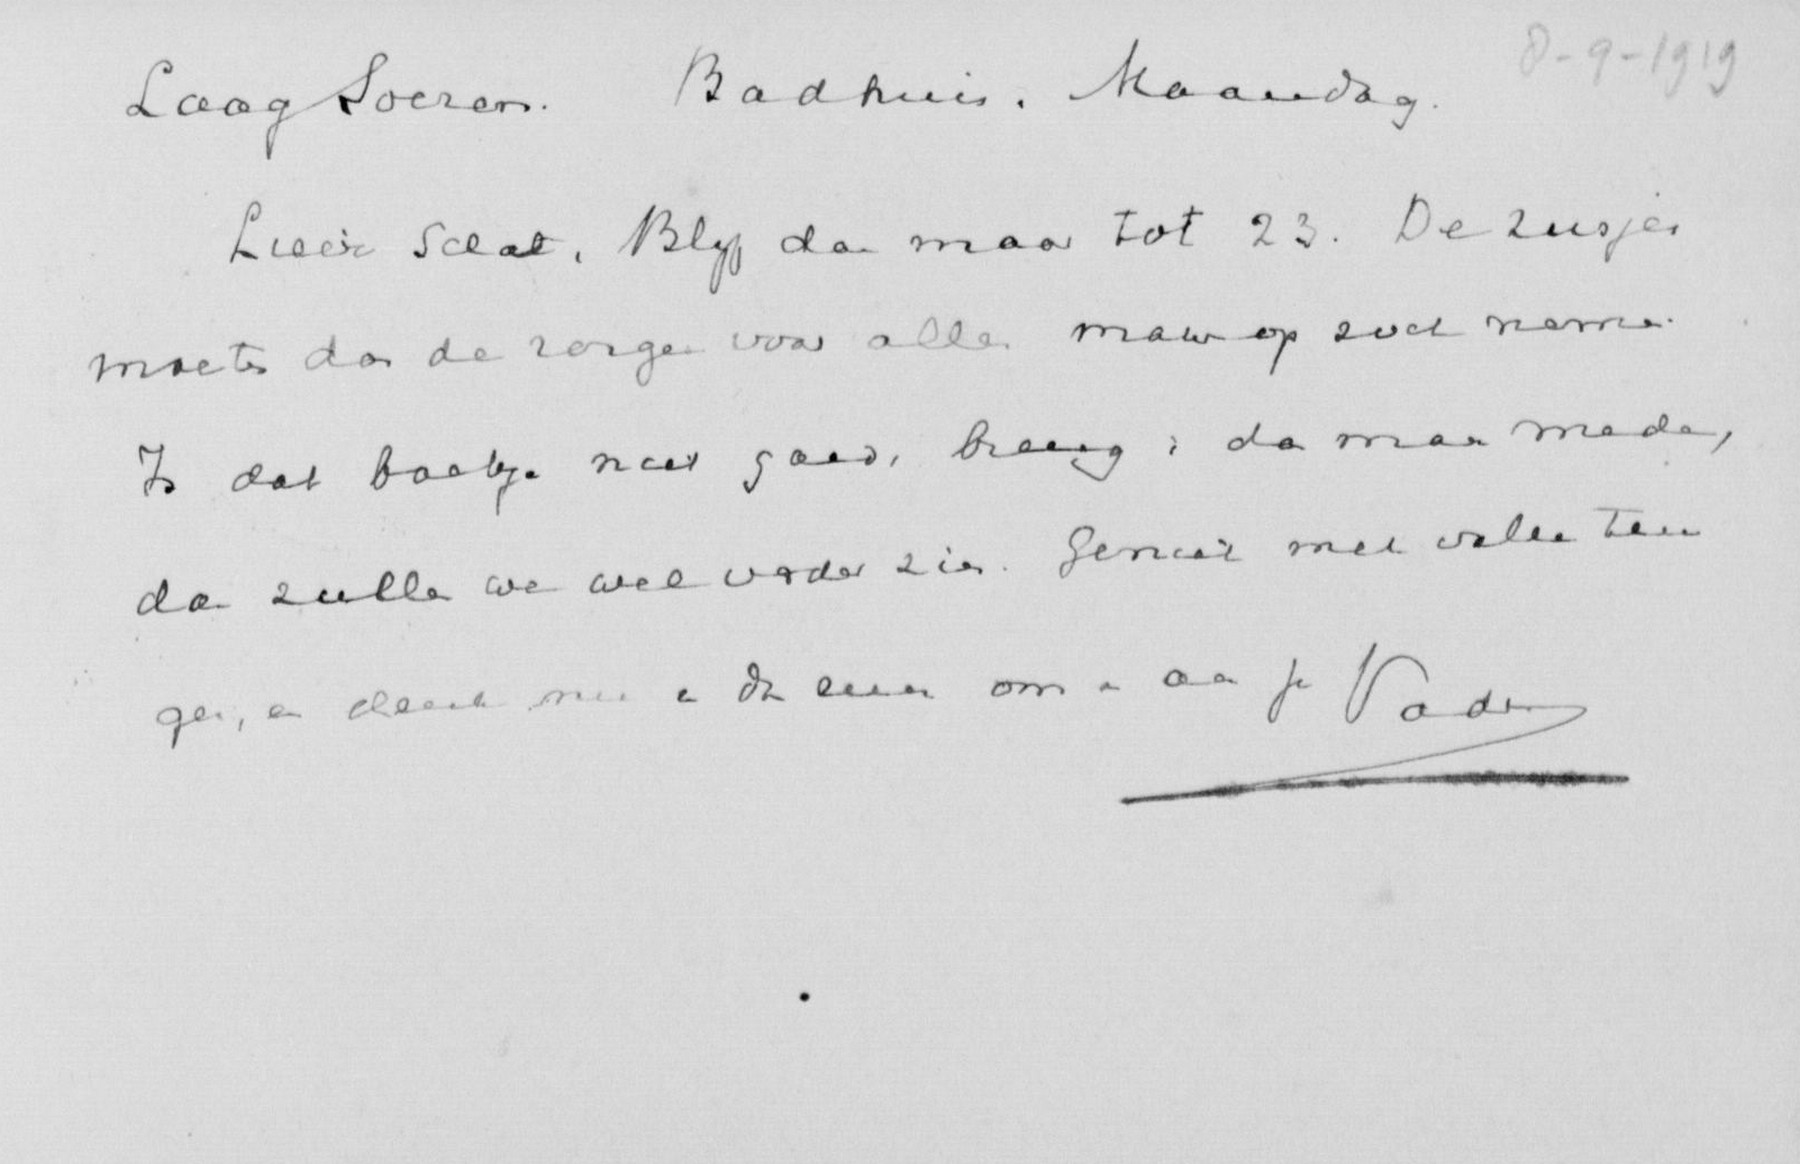 8-9-1919
Laag Soeren. Badhuis. Maandag.
Lieve Schat, Blijf dan maar tot 23. De zusjes
moeten dan de zorgen voor alles maar op zich nemen.
Is dat boekje niet goed, breng 't dan maar mede,
dan zullen we wel verder zien. Geniet met volle teu
gen, en denk nu en dan eens om en aan je Vader